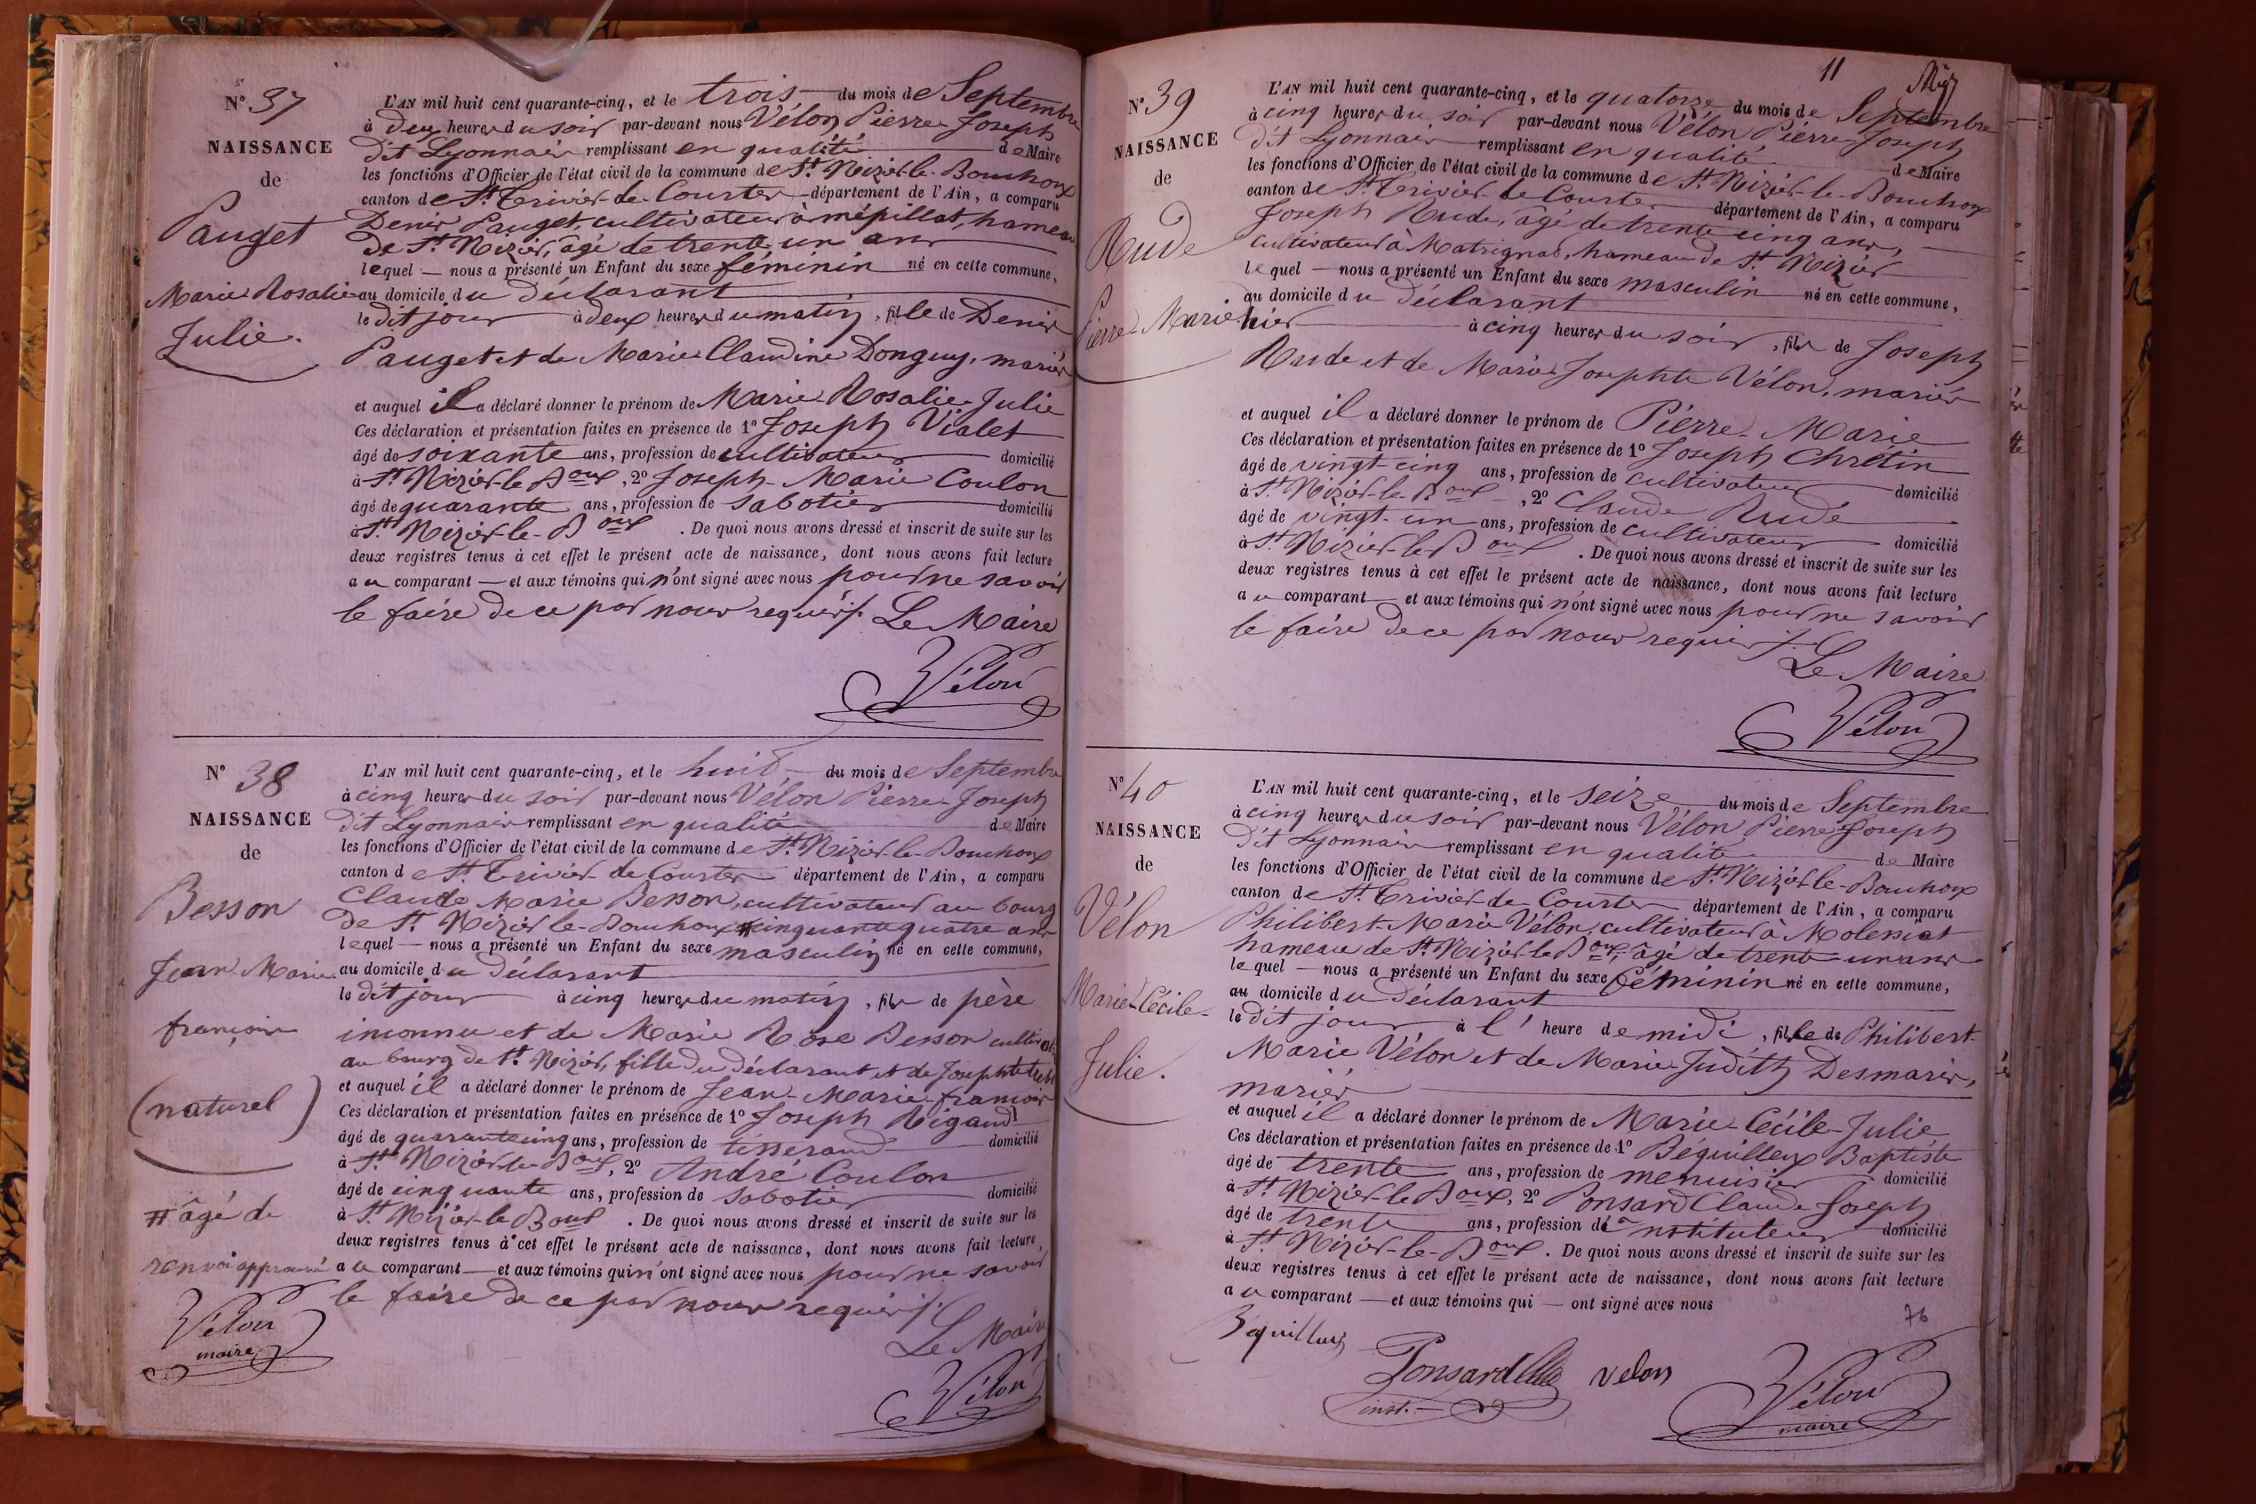 N° 37
NAISSANCE
de
Pauget
Marie Rosalie
Julie.
L'AN mil huit cent quarante-cinq, et le trois du mois de Septembre
à deux heures du soir par-devant nous Vélon Pierre Joseph
dit Lyonnais remplissant en qualité de Maire
les fonctions d'Officier de l'état civil de la commune de St. Nizier-le-Bouchoux
canton de St. Trivier-de-Courtes département de l'Ain, a comparu
Denis Pauget, cultivateur à mépillat, hameau
de St. Nizier, âgé de trente un ans
lequel nous a présenté un Enfant du sexe féminin né en cette commune,
au domicile du Déclarant
le dit jour à deux heures du matin, fille de Denis
Pauget et de Marie Claudine Donguy, mariés
et auquel il a déclaré donner le prénom de Marie Rosalie Julie
Ces déclaration et présentation faites en présence de 1° Joseph Vialet
âgé de soixante ans, profession de cultivateur domicilié
à St. Nizier-le-Boux, 2° Joseph-Marie Coulon
âgé de quarante ans, profession de sabotier domicilié
à St. Nizier-le-Boux. De quoi nous avons dressé et inscrit de suite sur les
deux registres tenus à cet effet le présent acte de naissance, dont nous avons fait lecture
au comparant et aux témoins qui n'ont signé avec nous pour ne savoir
le faire de ce par nous requis. Le Maire
Vélon
N° 38
NAISSANCE
de
Besson
Jean Marie
françois
(naturel)
# âgé de
renvoi approuvé
Vélon
maire
L'AN mil huit cent quarante-cinq, et le huit du mois de Septembre
à cinq heures du soir par-devant nous Vélon Pierre Joseph
dit Lyonnais remplissant en qualité de Maire
les fonctions d'Officier de l'état civil de la commune de St. Nizier-le-Bouchoux
canton de St. Trivier-de-Courtes département de l'Ain, a comparu
Claude Marie Besson, cultivateur au bourg
de St. Nizier-le-Bouchoux # cinquante quatre ans
lequel nous a présenté un Enfant du sexe masculin né en cette commune,
au domicile du Déclarant
le dit jour à cinq heures du matin, fils de père
inconnu et de Marie Rose Besson
au bourg de St. Nizier, fille du déclarant et de Josephte
et auquel il a déclaré donner le prénom de Jean-Marie-françois
Ces déclaration et présentation faites en présence de 1° Joseph Rigaud
âgé de quarante cinq ans, profession de tisserand domicilié
à St. Nizier-le-Boux, 2° André Coulon
âgé de cinquante ans, profession de sabotier domicilié
à St. Nizier-le-Boux. De quoi nous avons dressé et inscrit de suite sur les
deux registres tenus à cet effet le présent acte de naissance, dont nous avons fait lecture
au comparant et aux témoins qui n'ont signé avec nous pour ne savoir
le faire de ce par nous requis.
Le Maire
Vélon
11
N° 39
NAISSANCE
de
Rude
Pierre-Marie
L'AN mil huit cent quarante-cinq, et le quatorze du mois de Septembre
à cinq heures du soir par-devant nous Vélon Pierre Joseph
dit Lyonnais remplissant en qualité de Maire
les fonctions d'Officier de l'état civil de la commune de St. Nizier-le-Bouchoux
canton de St. Trivier-de-Courtes département de l'Ain, a comparu
Joseph Rude, âgé de trente cinq ans,
cultivateur à Matrignas, hameau de St. Nizier
lequel nous a présenté un Enfant du sexe masculin né en cette commune,
au domicile du Déclarant
hier à cinq heures du soir, fils de Joseph
Rude et de Marie Josephte Vélon, mariés
et auquel il a déclaré donner le prénom de Pierre-Marie
Ces déclaration et présentation faites en présence de 1° Joseph Chrétin
âgé de vingt-cinq ans, profession de cultivateur domicilié
à St. Nizier-le-Boux, 2° Claude Rude
âgé de vingt-un ans, profession de cultivateur domicilié
à St. Nizier-le-Boux. De quoi nous avons dressé et inscrit de suite sur les
deux registres tenus à cet effet le présent acte de naissance, dont nous avons fait lecture
au comparant et aux témoins qui n'ont signé avec nous pour ne savoir
le faire de ce par nous requis.
Le Maire
Vélon
N° 40
NAISSANCE
de
Vélon
Marie-Cécile-
Julie.
L'AN mil huit cent quarante-cinq, et le seize du mois de Septembre
à cinq heures du soir par-devant nous Vélon Pierre Joseph
dit Lyonnais remplissant en qualité de Maire
les fonctions d'Officier de l'état civil de la commune de St. Nizier-le-Bouchoux
canton de St. Trivier-de-Courtes département de l'Ain, a comparu
Philibert-Marie Vélon, cultivateur à Molessiat
hameau de St. Nizier-le-Boux, âgé de trente-un ans
lequel nous a présenté un Enfant du sexe féminin né en cette commune,
au domicile du Déclarant
le dit jour à l'heure de midi, fille de Philibert-
Marie Vélon et de Marie Judith Desmaris,
mariés
et auquel il a déclaré donner le prénom de Marie-Cécile-Julie
Ces déclaration et présentation faites en présence de 1° Béguilleux Baptiste
âgé de trente ans, profession de menuisier domicilié
à St. Nizier-le-Boux, 2° Ponsard Claude Joseph
âgé de trente ans, profession d'instituteur domicilié
à St. Nizier-le-Boux. De quoi nous avons dressé et inscrit de suite sur les
deux registres tenus à cet effet le présent acte de naissance, dont nous avons fait lecture
au comparant et aux témoins qui ont signé avec nous
76
Ponsard
inst.
velon
Vélon
maire